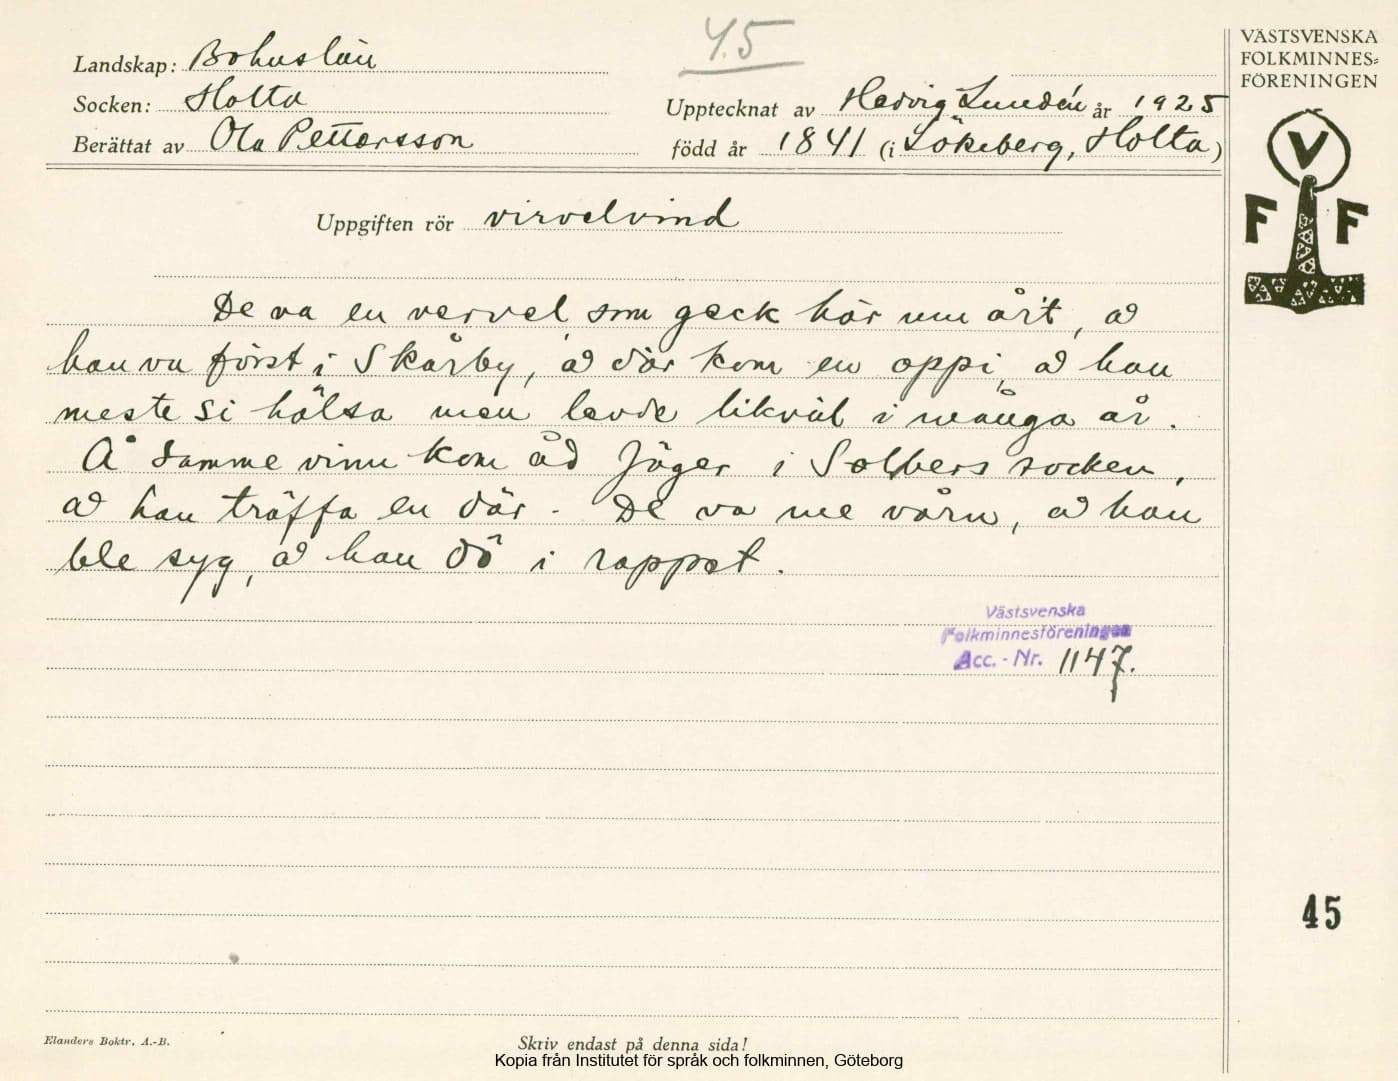 45
VÄSTSVENSKA
FOLKMINNES=
FÖRENINGEN
Landskap: Bohuslän
Socken: Holta
Upptecknat av Hedvig Lundén år 1925
Berättat av Ola Pettersson
född år 1841 (i Lökeberg, Holta)
V
F F
Uppgiften rör virvelvind
De va en vervel som geck här um årt, å
han va först i Skårby, å där kom en oppi, å han
meste si hälsa men levde likväl i många år.
Å samme vinn kom åd Jäger i Solbers socken,
å han träffa en där. De va me vårn, å han
ble syg, å han dö i rappet.
Västsvenska
Folkminnesföreningen
Acc. - Nr. 1147.
45
Elanders Boktr. A.-B.
Skriv endast på denna sida!
Kopia från Institutet för språk och folkminnen, Göteborg